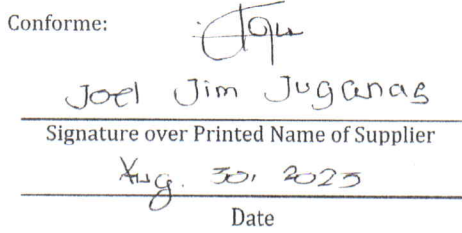 Conforme:
Joel Jim Juganas
Signature over Printed Name of Supplier
Aug. 30, 2023
Date